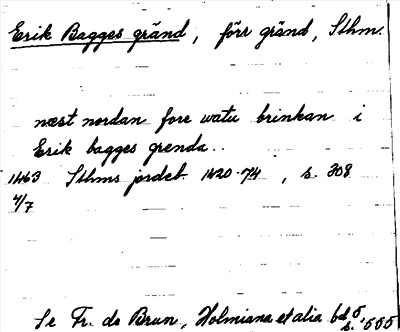 Erik Bagges gränd, förr gränd, Sthm.
næst nordan fore watu brinkan i
Erik bagges grenda..
1463 Sthms jordeb. 1420-74, s. 308
4/7
Se Fr. de Brun, Holmiana et alia bd 5
s. 555